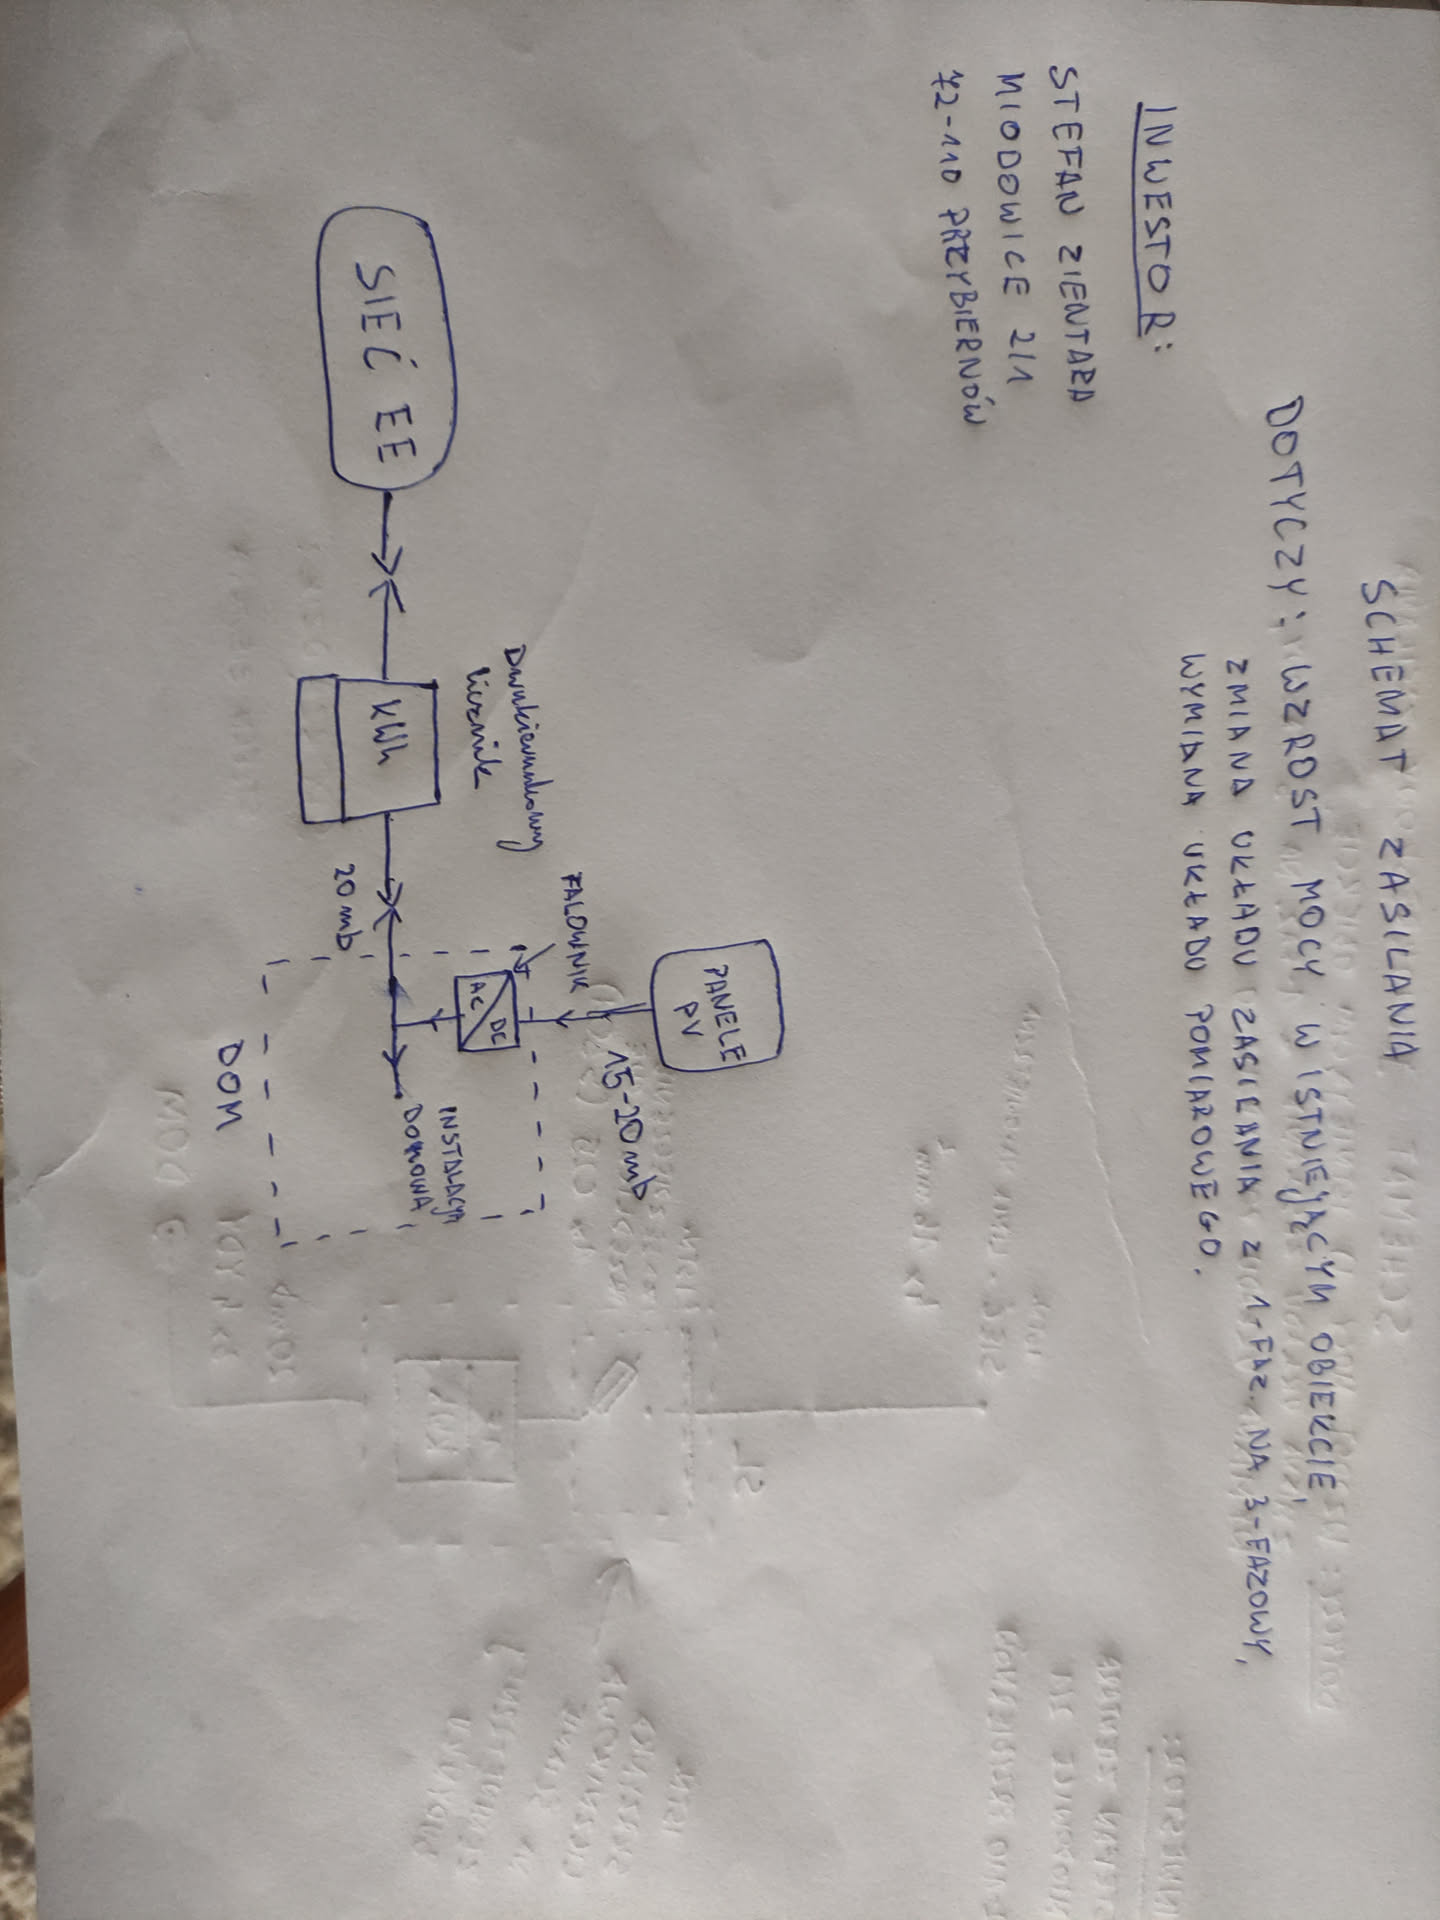 SCHEMAT ZASILANIA
DOTYCZY: WZROST MOCY, W ISTNIEJĄCYM OBIEKCIE,
ZMIANA UKŁADU ZASILANIA Z 1-FAZ. NA 3-FAZOWY,
WYMIANA UKŁADU POMIAROWEGO.
INWESTOR:
STEFAN ZIENTARA
MIODOWICE 2/1
72-110 PRZYBIERNÓW
PANELE
PV
15-20 mb
FALOWNIK
Dwukierunkowy
licznik
DC
AC
SIEĆ EE
kWh
20 mb
INSTALACJA
DOMOWA
DOM